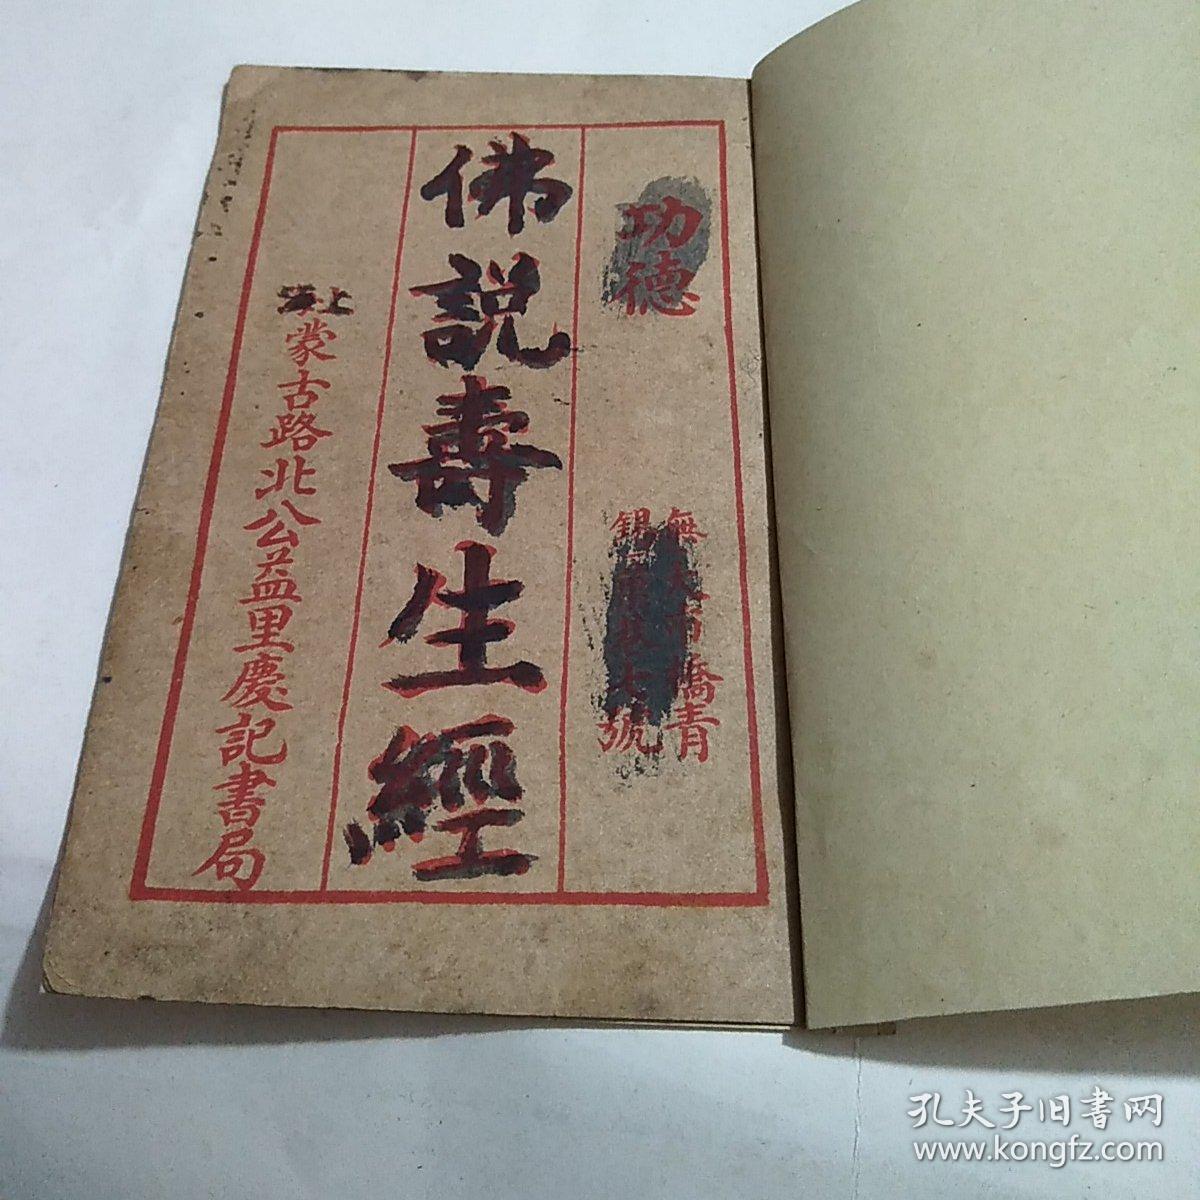 功德
無 橋青
錫 七號
佛説壽生經
上 蒙古路北公益里慶記書局
孔夫子旧書网
www.kongfz.com